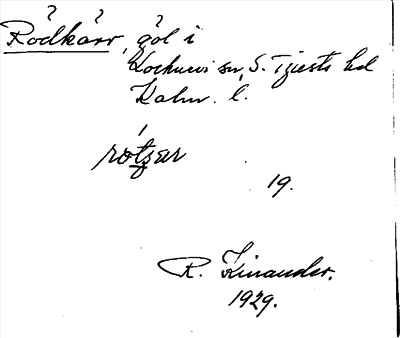 Rödkärr, göl i
Locknevi sn, S. Tjusts hd
Kalm. l.
rötzær
19.
R. Kinander.
1929.